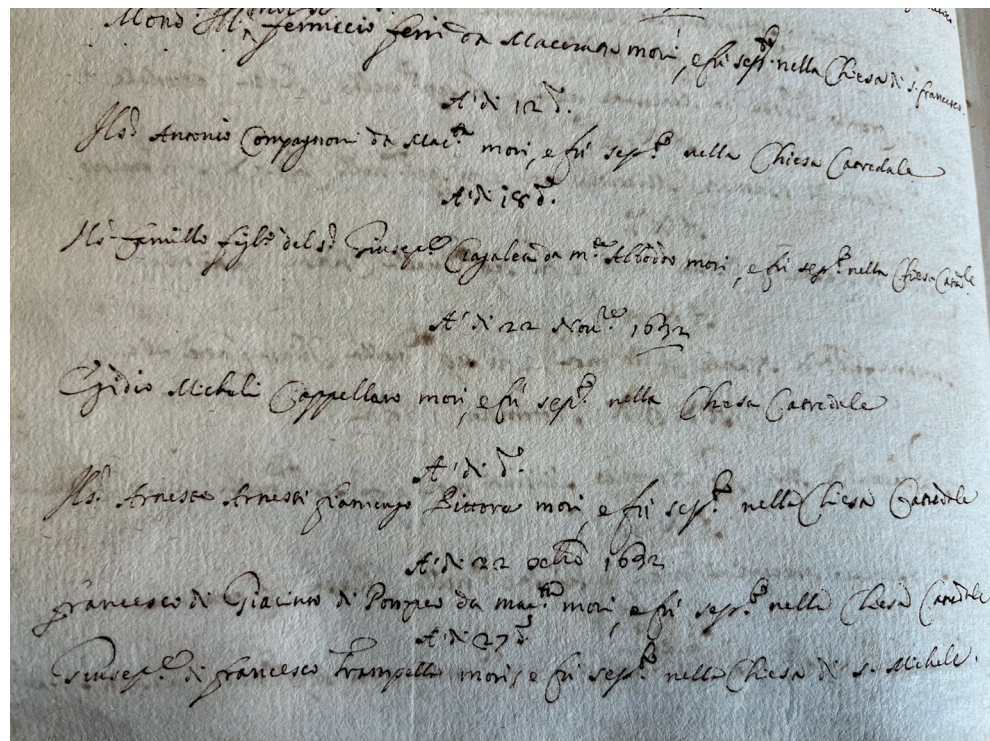 Mons.r Ill. ferruccio ferri da Macerata morì, e fù sep.to nella Chiesa di S. francesco
A' dì 12 d.o
Il s.r Antonio Compagnoni da Mac.ta morì, e fù sep.to nella Chiesa Catredale
A' dì 18 d.o
Il s.r Camillo figl.o del s.r Giusep.e da m.te Alboddo morì, e fù sep.to nella Chiesa Cat.le
A' dì 22 Nou.re 1632
Egidio Micheli Cappellaro morì, e fù sep.to nella Chiesa Catredale
A' dì d.o
Il s.r Arnesto Arnesti fiamengo Pittore morì, e fù sep.to nella Chiesa Catredale
A' dì 22 1632
francesco di Giacinto di Pompeo da mac.ta morì, e fù sep.to nella Chiesa Catredale
A' dì 27 d.o
Giusep.e di francesco Trampella morì, e fù sep.to nella Chiesa di S. Michele.